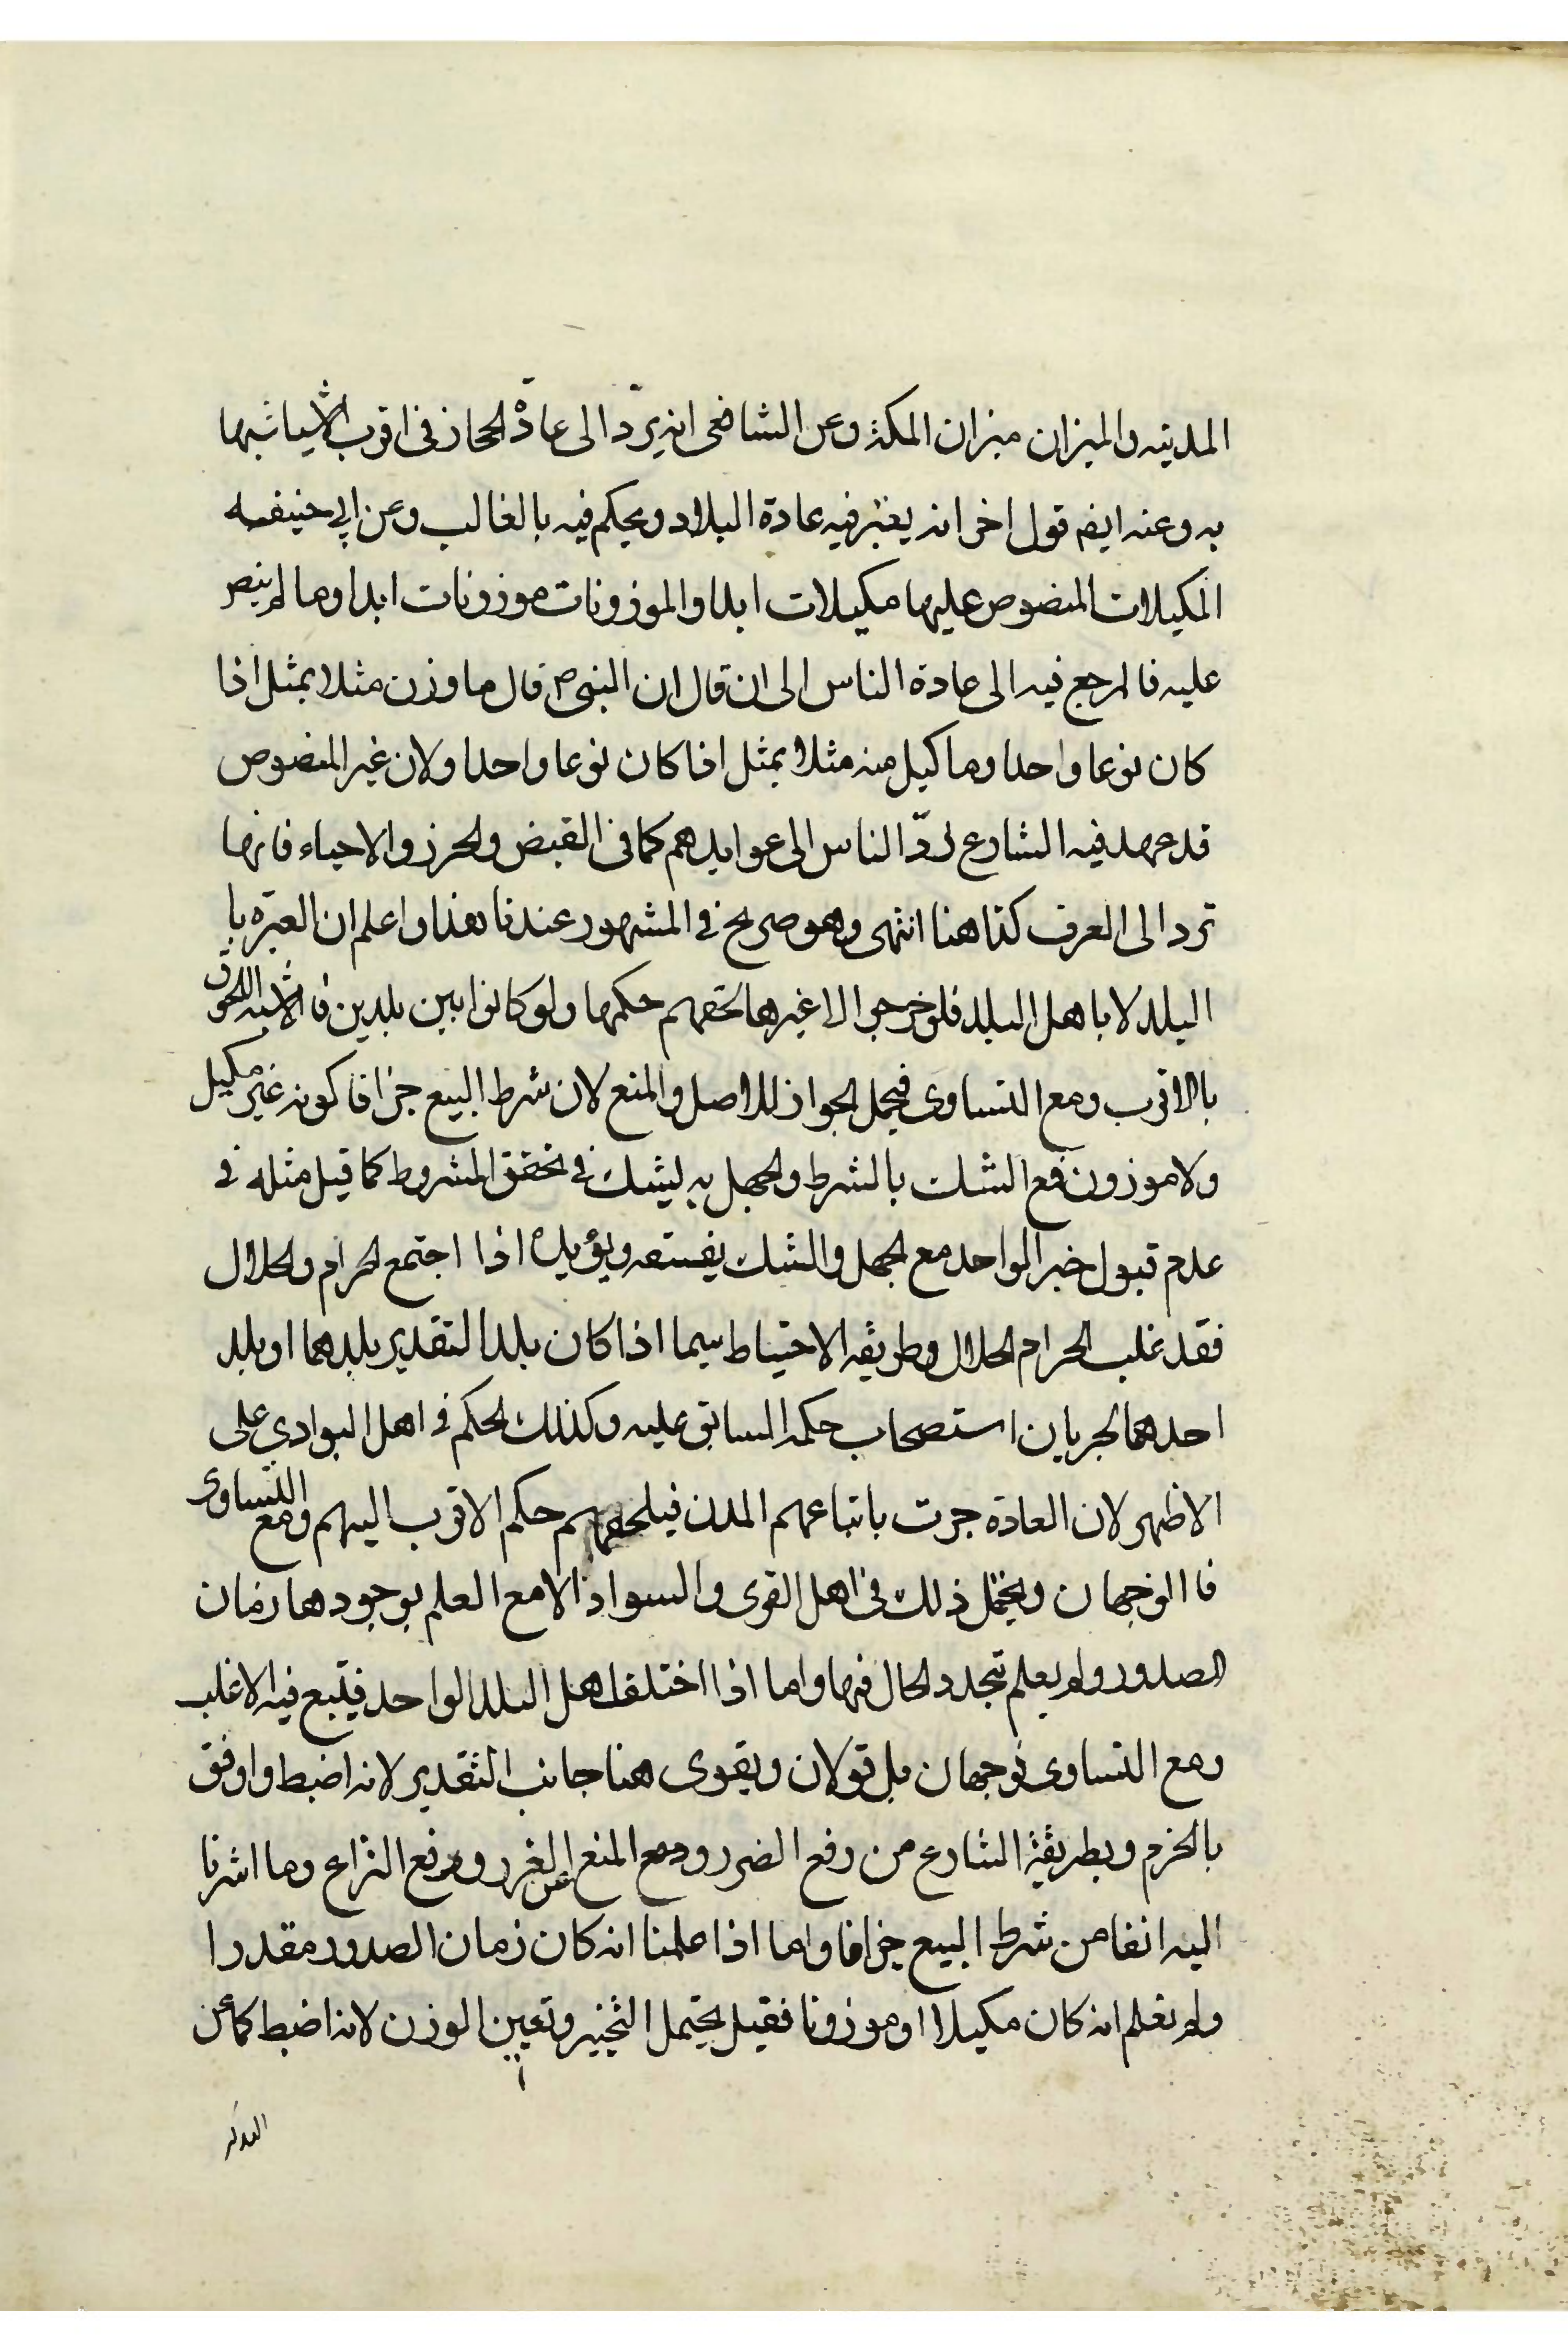 المدينه والميزان ميزان المكة وعن الشافعى انه يردّ الى عادة الحجاز فى اقرب الاشياء شبها
به وعنه ايضم قول اخر انه يعتبر فيه عادة البلاد ويحكم فيه بالغالب وعن ابي حنيفه
المكيلات المنصوص عليها مكيلات ابدا والموزونات موزونات ابدا وما لم ينص
عليه فالمرجع فيه الى عادة الناس الى ان قال ان النبى ص قال ما وزن مثلا بمثل اذا
كان نوعا واحدا وما كيل منه مثلا بمثل اذا كان نوعا واحدا ولان غير المنصوص
قد عهد فيه الشارع لردّ الناس الى عوايدهم كما فى القبض والحرز والاحياء فانها
ترد الى العرف كذا هنا انتهى وهو صريح في المشهور عندنا هذا واعلم ان العبرة با
البلد لا باهل البلد فلو خرجوا الا غيرها لحقهم حكمها ولو كانوا بين بلدين فالاشبه اللحوق
بالاقرب ومع التساوى فيحمل الجواز للاصل والمنع لان شرط البيع جزافا كونه غير مكيل
ولا موزون فمع الشك بالشرط والجهل به ليشك في تحقق المشروط كما قيل مثله في
علم قبول خبر الواحد مع الجهل والشك بفسقه ويؤيده اذا اجتمع الحرام والحلال
فقد غلب الحرام الحلال وطريقه الاحتياط سيما اذا كان بلد التقدير بلدهما او بلد
احدهما لجريان استصحاب حكمه السابق عليه وكذلك الحكم في اهل البوادي على
الاظهر لان العادة جرت باتباعهم المدن فيلحقهم حكم الاقرب اليهم ومع التساوى
فا الوجهان ويحتمل ذلك فى اهل القرى والسواد الا مع العلم بوجودها زمان
الصدور ولم يعلم تجدد الحال فيها واما اذا اختلف اهل البلد الواحد فيتبع فيه الاغلب
ومع التساوى فوجهان بل قولان ويقوى هنا جانب التقدير لانه اضبط واوفق
بالحزم وبطريقة الشارع من رفع الضرر ومع المنع عن الغرر ورفع النزاع وما اشرنا
اليه انفا من شرط البيع جزافا واما اذا علمنا انه كان زمان الصدور مقدرا
ولم نعلم انه كان مكيلا او موزونا فقيل يحتمل التخيير وتعين الوزن لانه اضبط كما عن